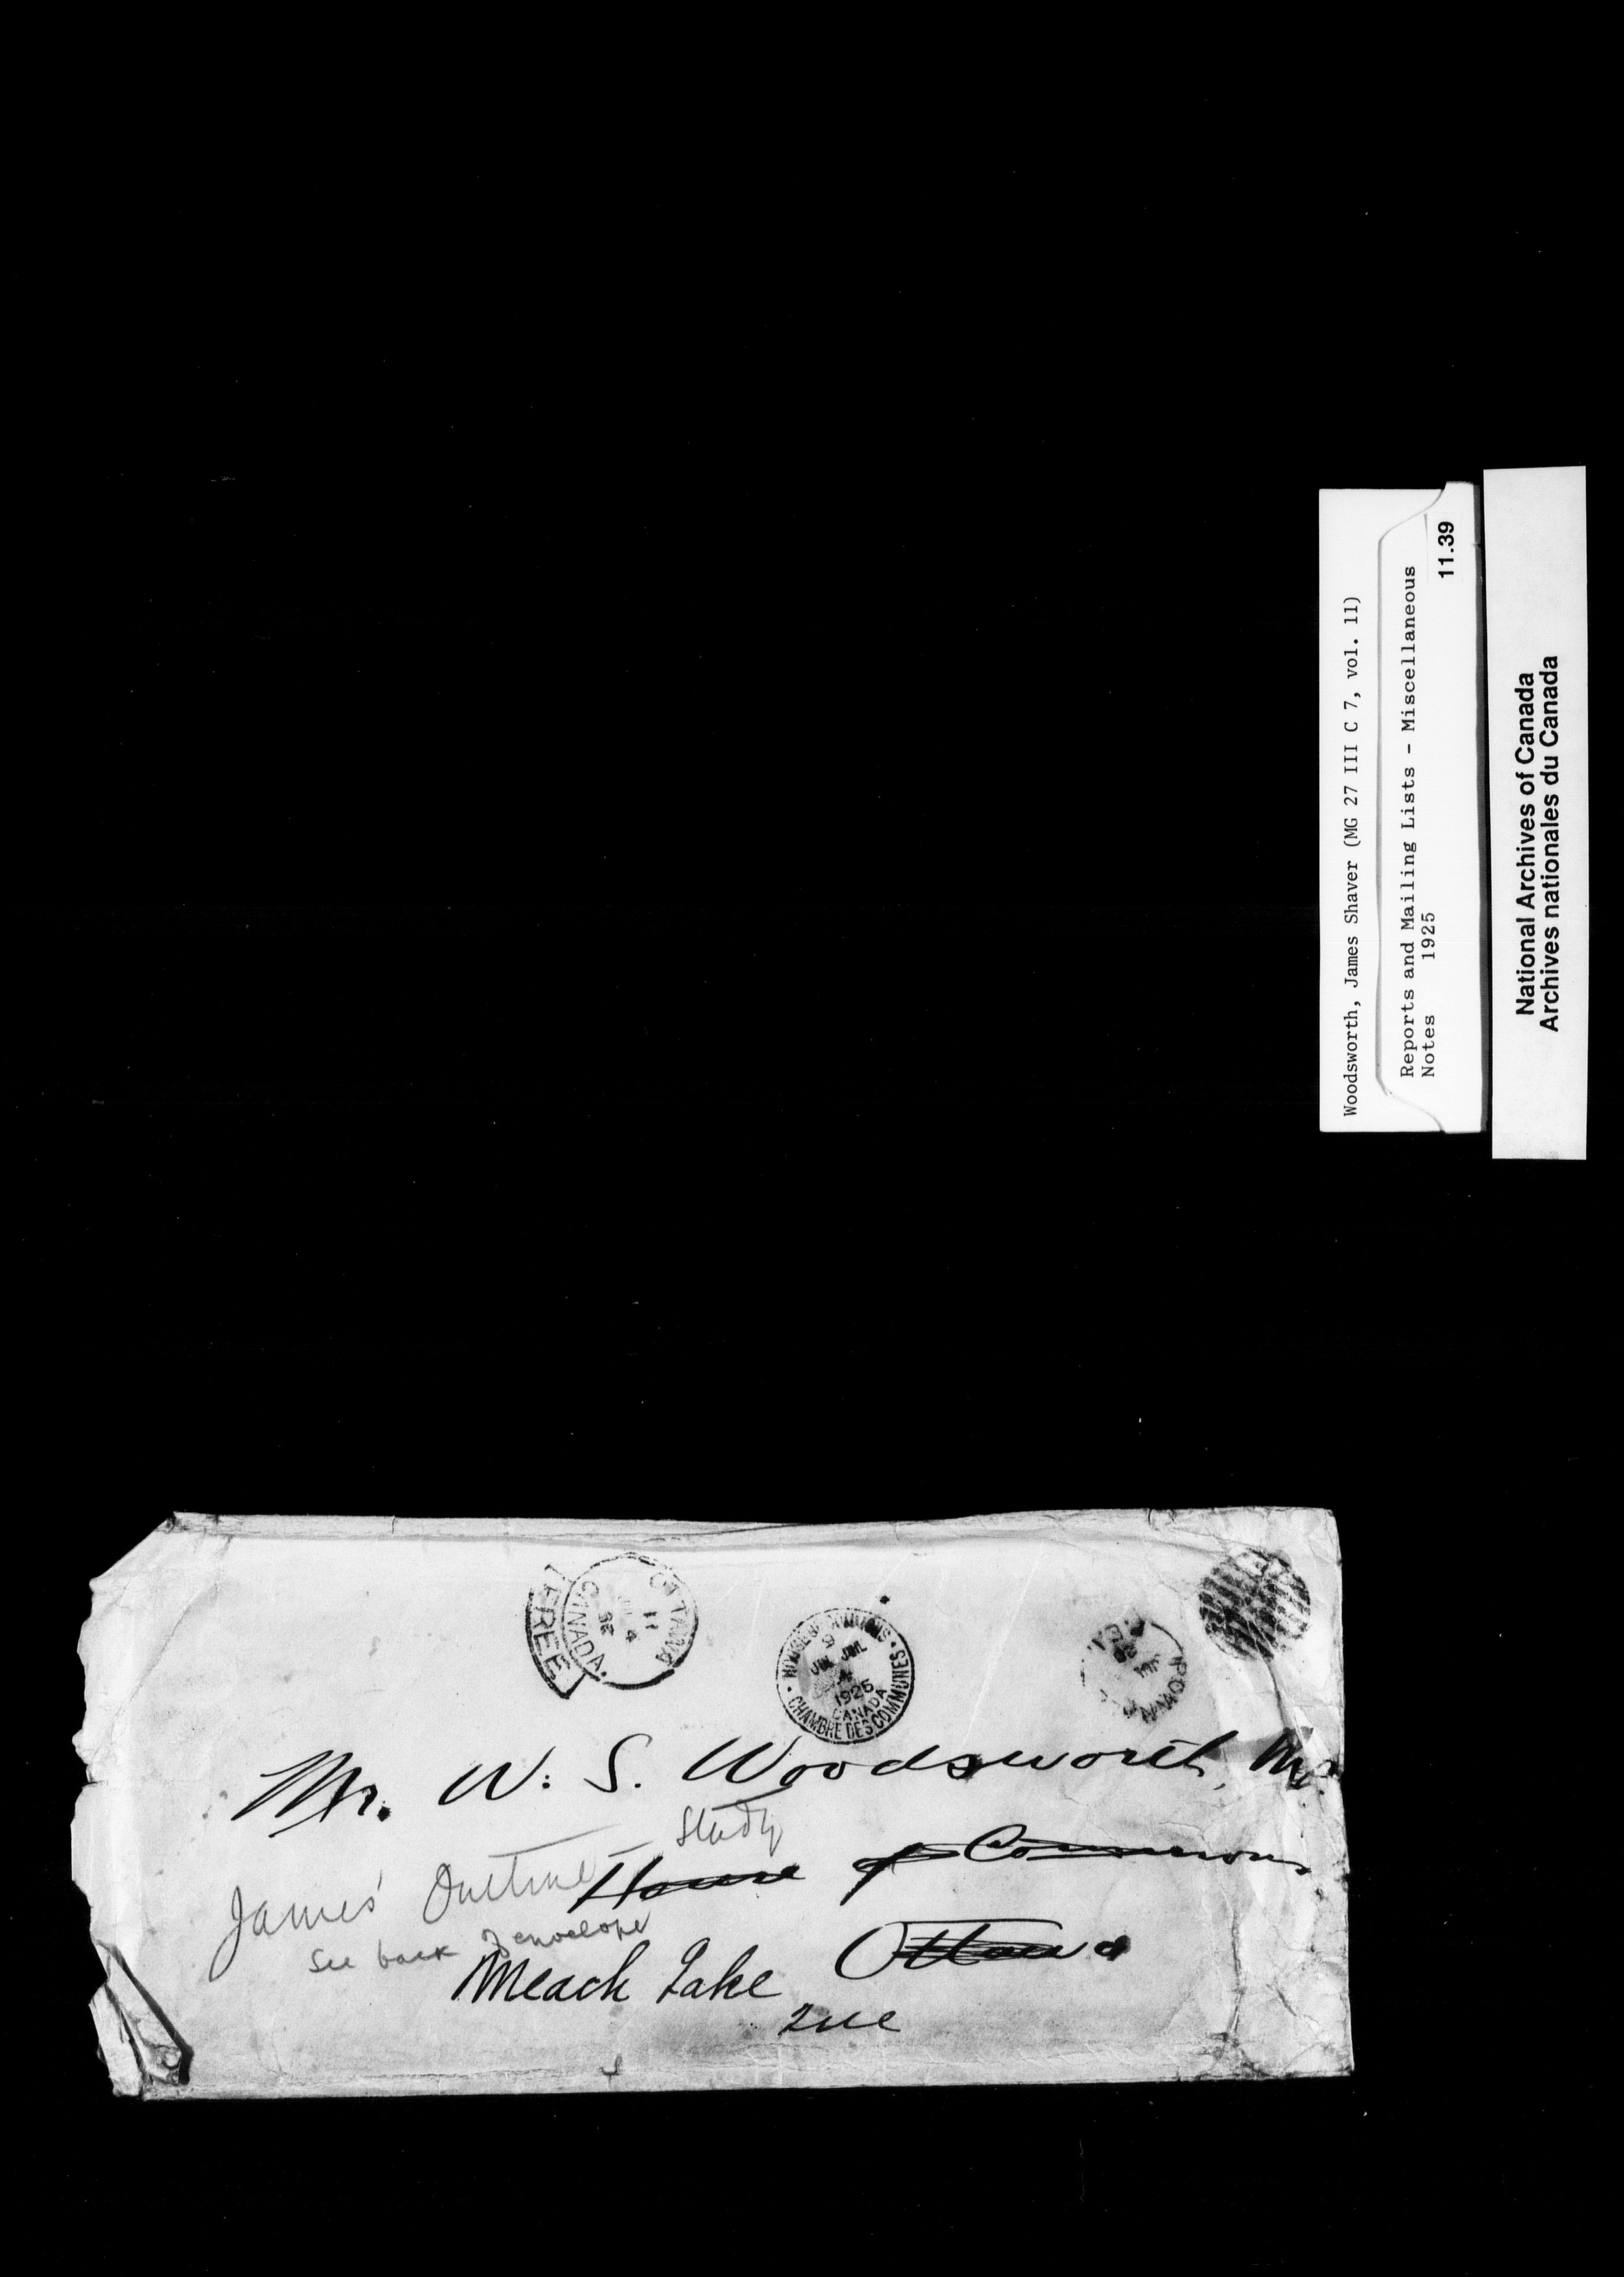 Woodsworth, James Shaver (MG 27 III C 7, vol. 11)
Reports and Mailing Lists - Miscellaneous
Notes 1925
11.39
National Archives of Canada
Archives nationales du Canada
FREE
OTTAWA
11
JUL 4
25
CANADA.
HOUSE OF COMMONS
9
JUL
4
1925
CANADA
CHAMBRE DES COMMUNES
Mr. W. S. Woodsworth, M.P.
Study
House of Commons
James' Outline
Ottawa
See back of envelope
Meach Lake
Que